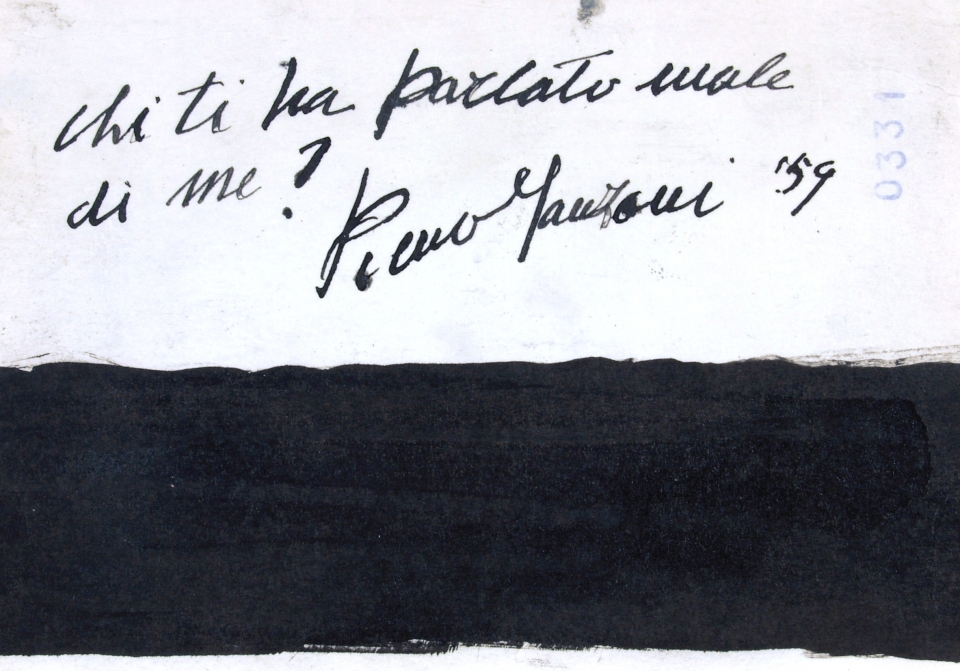 chi ti ha parlato male
di me?
Piero Manzoni '59
0331